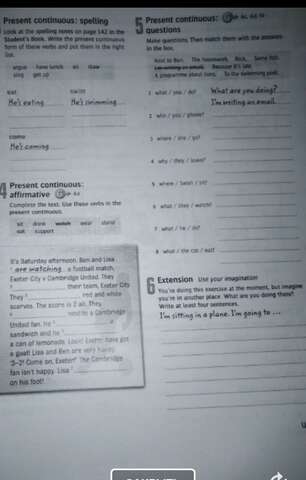 Present continuous: spelling
Look at the spelling notes on page 142 in the
Student's Book. Write the present continuous
form of these verbs and put them in the right
list.
argue have lunch sit draw
sing get up
eat swim
He's eating He's swimming
come
He's coming
4 Present continuous:
affirmative
Complete the text. Use these verbs in the
present continuous.
sit drink watch wear stand
eat support
It's Saturday afternoon. Ben and Lisa
are watching a football match,
Exeter City v Cambridge United. They
their team, Exeter City.
They red and white
scarves. The score is 2 all. They
next to a Cambridge
United fan. He a
sandwich and he
a can of lemonade. Look! Exeter have got
a goal! Lisa and Ben are very happy.
'3–2! Come on, Exeter!' The Cambridge
fan isn't happy. Lisa
on his foot!
5 Present continuous:
questions
Make questions. Then match them with the answers
in the box.
Next to Ben. The homework. Rock. Some fish.
I'm writing an email. Because it's late.
A programme about lions. To the swimming pool.
1 what / you / do? What are you doing?
I'm writing an email.
2 who / you / phone?
3 where / she / go?
4 why / they / leave?
5 where / Sarah / sit?
6 what / they / watch?
7 what / he / do?
8 what / the cat / eat?
6 Extension Use your imagination
You're doing this exercise at the moment, but imagine
you're in another place. What are you doing there?
Write at least four sentences.
I'm sitting in a plane. I'm going to ...